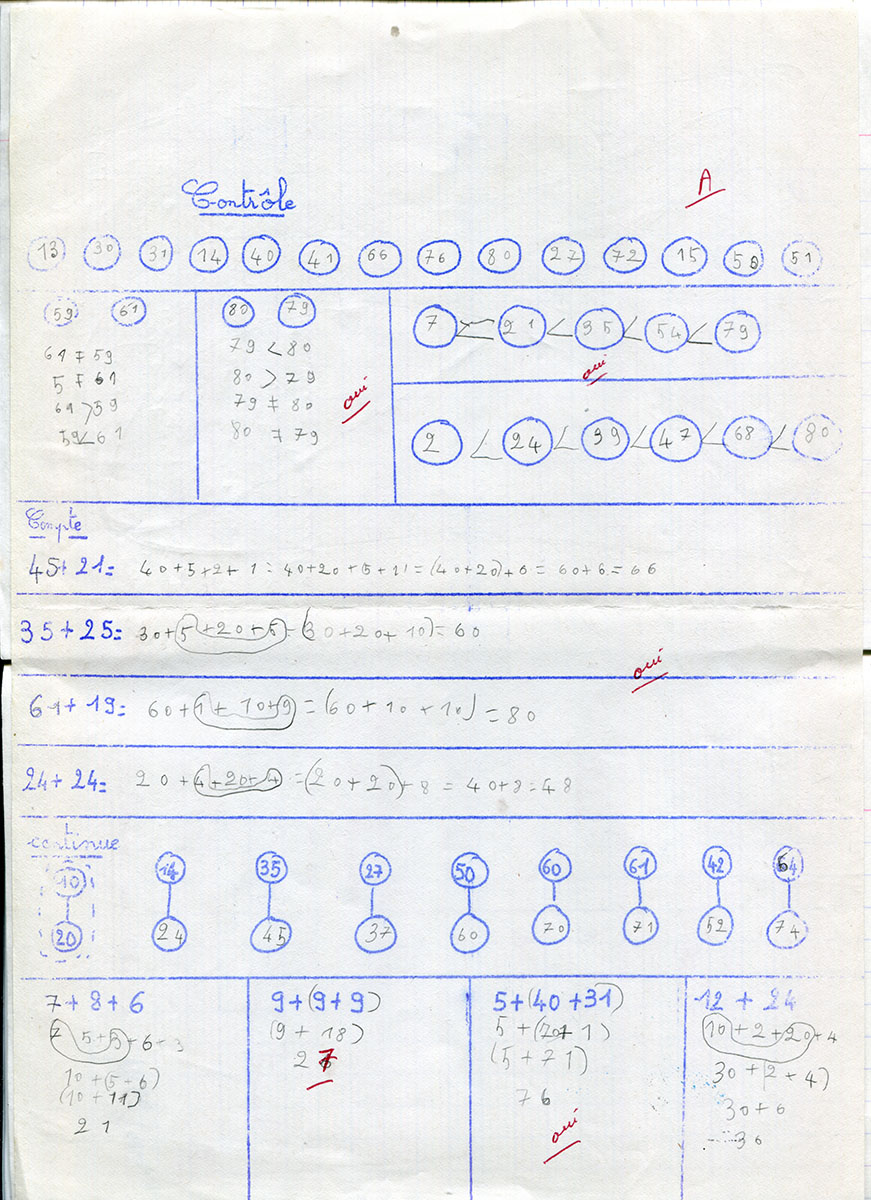 Contrôle A
13 30 31 14 40 41 66 76 80 27 72 15 50 51
59 61
61 ≠ 59
5 ≠ 61
61 > 59
59 < 61
80 79
79 < 80
80 > 79
79 ≠ 80
80 ≠ 79
oui
7 < 21 < 35 < 54 < 79
oui
2 < 24 < 39 < 47 < 68 < 80
Compte
45+21= 40+5+2+1 = 40+20+5+1 = (40+20)+6 = 60+6 = 66
35+25= 30+5+20+5=(30+20+10)=60
oui
61+19= 60+1+10+9=(60+10+10)=80
24+24= 20+4+20+4=(20+20)+8=40+8=48
continue
10 14 35 27 50 60 61 42 64
20 24 45 37 60 70 71 52 74
7+8+6
7 5+5+6+3
10+(5+6)
(10+11)
21
9+(9+9)
(9+18)
27
5+(40+31)
5+(70+1)
(5+71)
76
oui
12+24
10+2+20+4
30+(2+4)
30+6
36